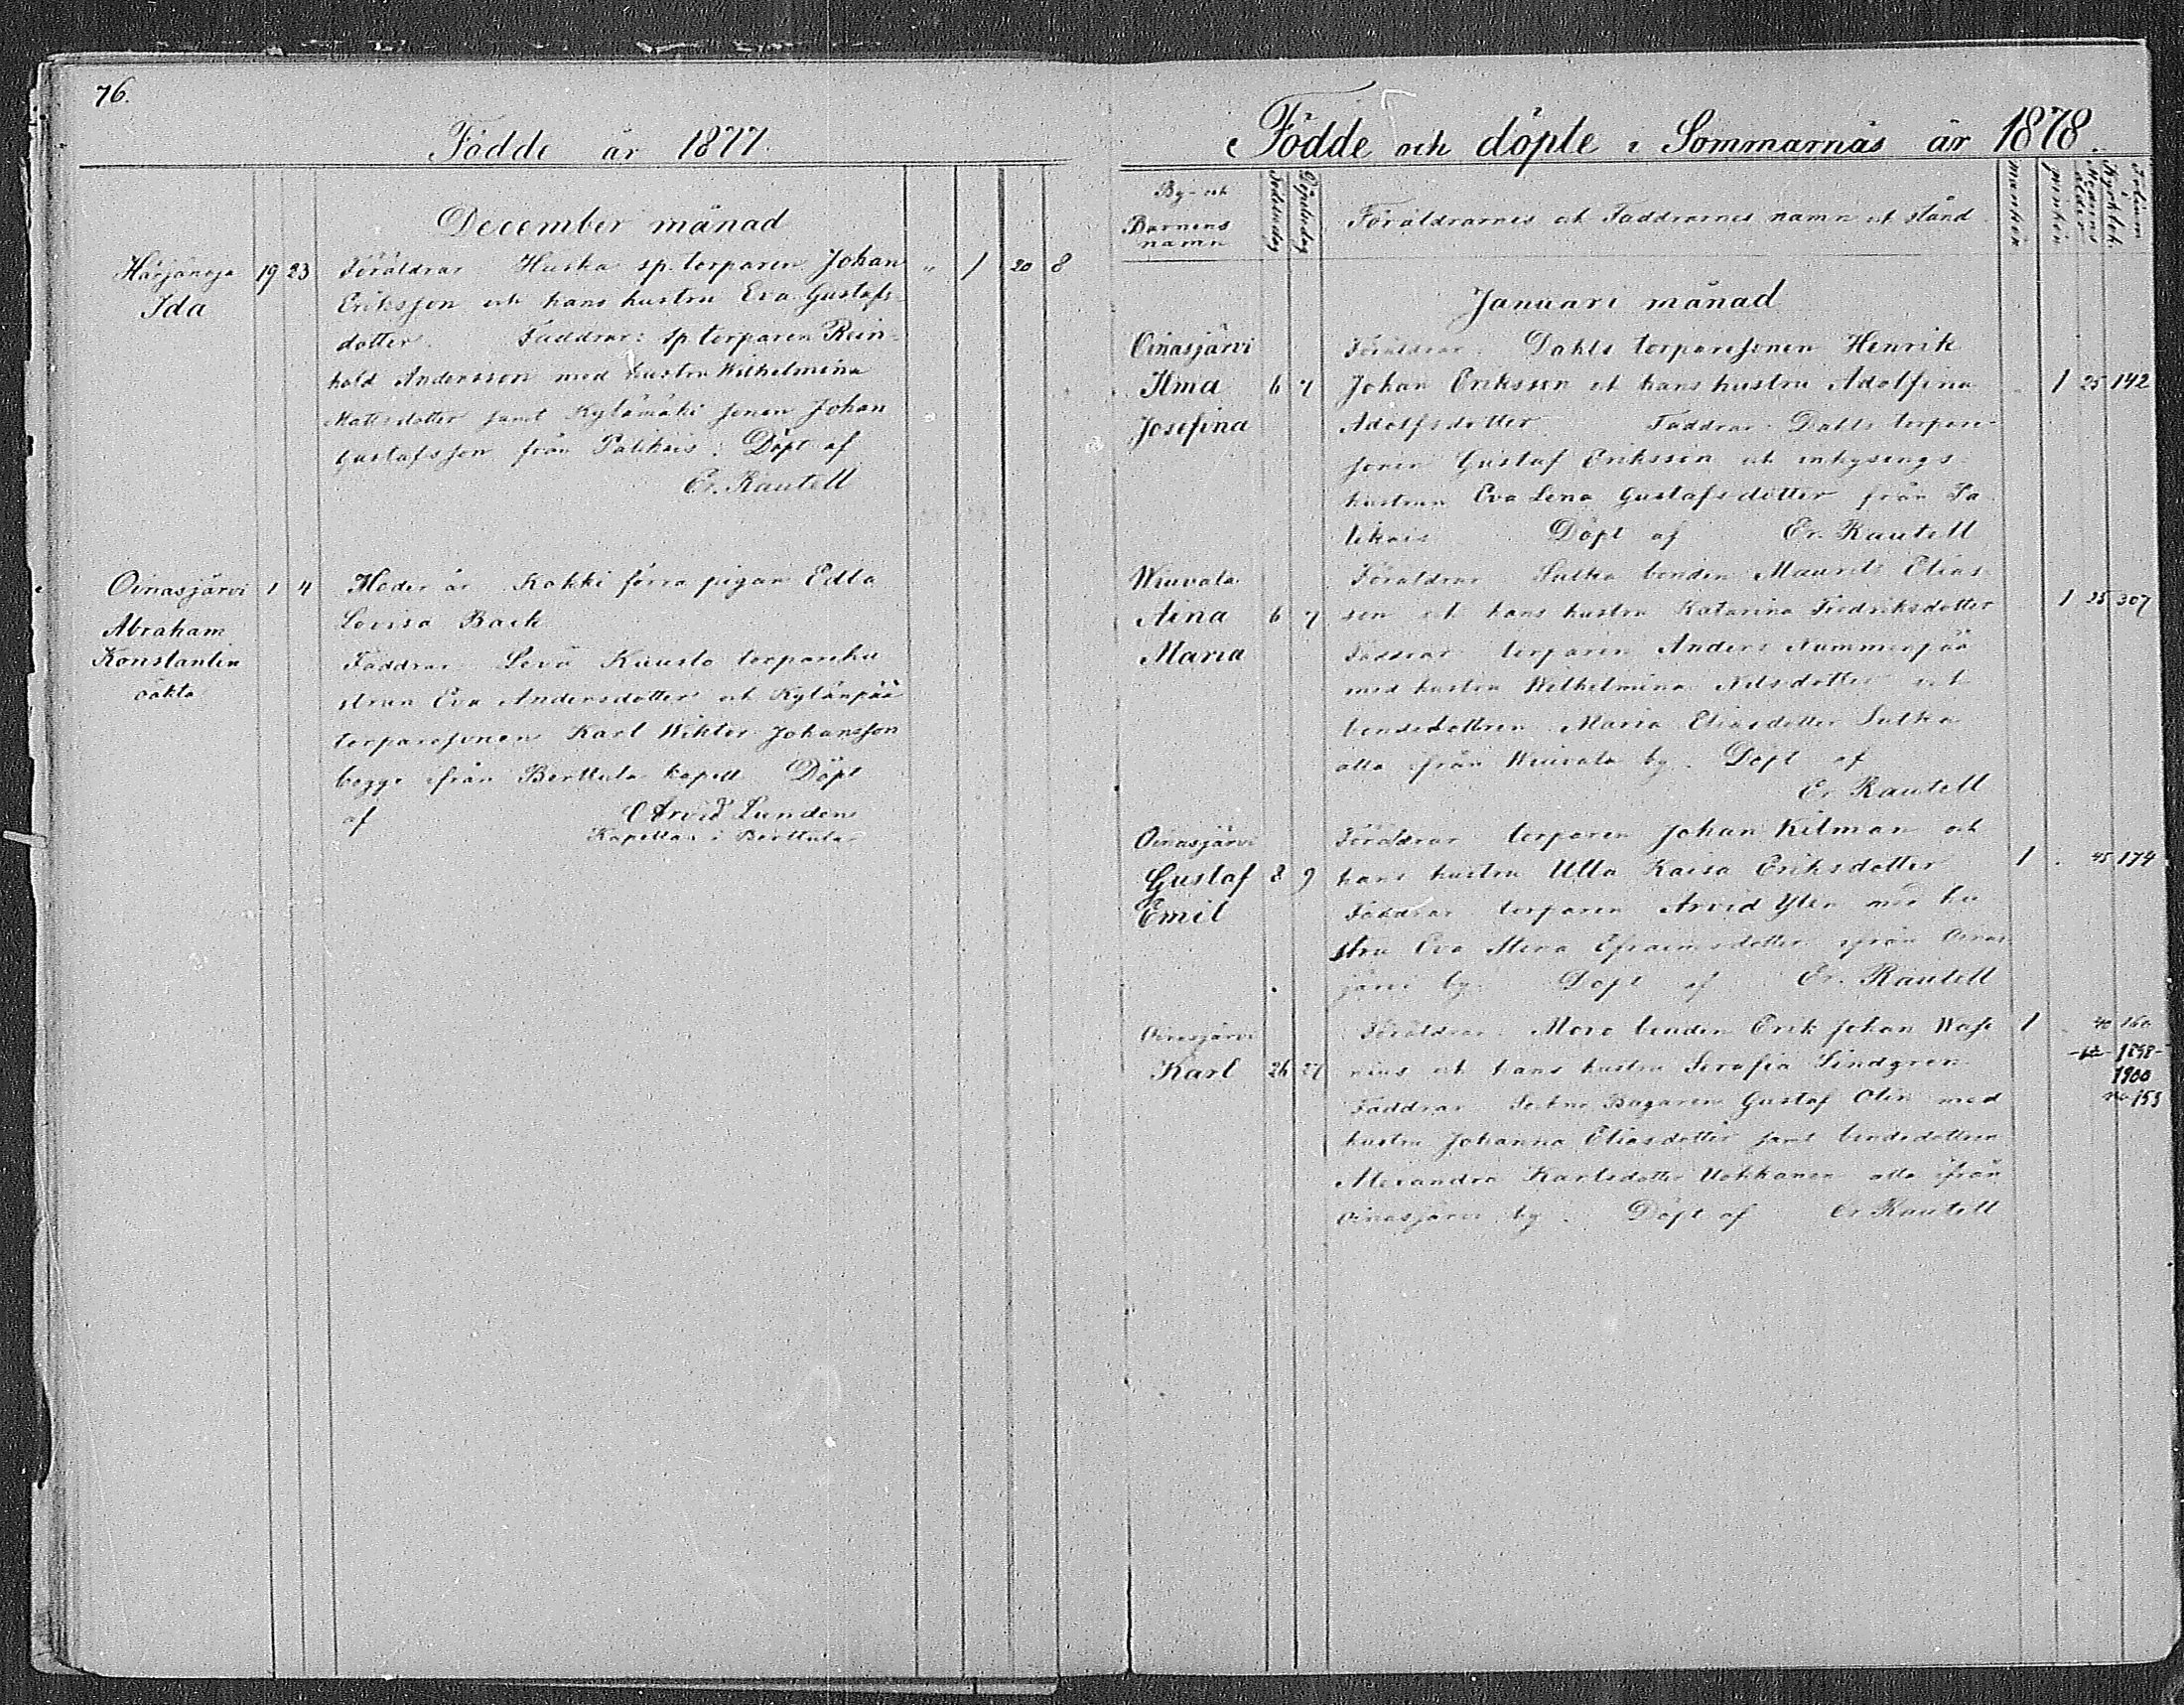 76.
Födde år 1877.
December månad
Härjänoja 19 23 Föräldrar Huska sp. torparen Johan " 1 20 8
Ida Eriksson och hans hustru Eva Gustafs-
dotter. Faddrar: sp torparen Rein-
hold Andersson med hustru Wilhelmina
Mattsdotter samt Kylämäki sonen Johan
Gustafsson från Palikais. Döpt af
Er. Rautell
Oinasjärvi 1 4 Moder är Kakki förra pigan Edla
Abraham Lovisa Back
Konstantin Faddrar Kuusto torparehu
oäkta strun Eva Andersdotter och Kylänpää
torparesonen Karl Wiktor Johansson
begge ifrån Berttula kapell Döpt
af Arvid Lundens
Kapellan i Berttula
Födde och döpte i Sommarnäs år 1878.
By- och Barnens namn
Födelsedag
Döpelsedag
Föräldrarnes och Faddrarnes namn och stånd
mankön
qvinkön
Modrens ålder
Folium i Kyrkbok
Januari månad
Oinasjärvi Föräldrar: Dahls torparesonen Henrik
Ilma 6 7 Johan Eriksson och hans hustru Adolfina 1 25 142
Josefina Adolfsdotter Faddrar: Dahls torpare-
sonen Gustaf Eriksson och inhysings-
hustrun Eva Lena Gustafsdotter från Pa-
likais Döpt af Er. Rautell
Wiuvala Föräldrar Sutka bonden Maurits Elias-
Aina 6 7 son och hans hustru Katarina Fredriksdotter 1 25 307
Maria Faddrar torparen Anders Nummenpää
med hustru Wilhelmina Nilsdotter och
bondedottren Maria Eliasdotter Sutka
alla ifrån Wiuvala by. Döpt af
Er Rautell
Oinasjärvi Föräldrar torparen Johan Kilman och
Gustaf 8 9 hans hustru Ulla Kaisa Eriksdotter 1 . 45 174
Emil Faddrar torparen Arvid Ylen med hu
stru Eva Stina Efraimsdotter ifrån Oinas-
järvi by. Döpt af Er. Rautell
Oinasjärvi Föräldrar. Moro bonden Erik Johan Wase 1 40 160
Karl 26 27 nius och hans hustru Serafia Lindgren 1898-
1900
Faddrar Bagaren Gustaf Olin med 153
hustru Johanna Eliasdotter samt bondedottren
Alexandra Karlsdotter Uokkanen alla ifrån
Oinasjärvi by. Döpt af Er Rautell